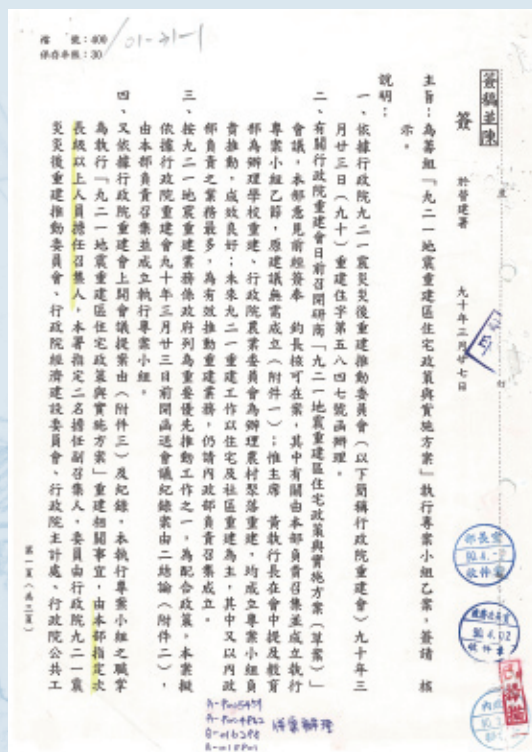 檔 號：400
保存年限：30
01-31-1
簽稿並陳
簽
於營建署
九十年三月廿七日
主旨：為籌組「九二一地震重建區住宅政策與實施方案」執行專案小組乙案，簽請 核
示。
說明：
一、依據行政院九二一震災災後重建推動委員會（以下簡稱行政院重建會）九十年三
月廿三日（九十）重建住字第五八四七號函辦理。
二、有關行政院重建會日前召開研商「九二一地震重建區住宅政策與實施方案（草案）」
會議，本部意見前經簽奉 鈞長核可在案，其中有關由本部負責召集並成立執行
專案小組乙節，原建議無需成立（附件一）；惟主席 黃執行長在會中提及教育
部為辦理學校重建、行政院農業委員會為辦理農村聚落重建，均成立專案小組負
責推動，成效良好；未來九二一重建工作以住宅及社區重建為主，其中又以內政
部負責之業務最多，為有效推動重建業務，仍請內政部負責召集成立。
三、按九二一地震重建業務係政府列為重要優先推動工作之一，為配合政策，本案擬
依據行政院重建會九十年三月廿三日前開函送會議紀錄案由二結論（附件二），
由本部負責召集並成立執行專案小組。
四、又依據行政院重建會上開會議提案由（附件三）及紀錄，本執行專案小組之職掌
為執行「九二一地震重建區住宅政策與實施方案」重建相關事宜，由本部指定次
長級以上人員擔任召集人，本署指定二名擔任副召集人，委員由行政院九二一震
災災後重建推動委員會、行政院經濟建設委員會、行政院主計處、行政院公共工
第一頁（共三頁）
裝
訂
部長室
90.4.-2
收件章
90.4.02
收件章